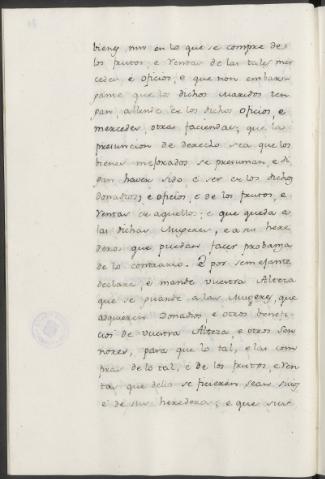 bienes, nin en lo que se compre de
los frutos, e rentas de las tales mer
cedes, e oficios, e que non embarg
gante que los dichos maridos ten
gan allende de los dichos oficios, e
mercedes, otras faciendas, que la
presuncion de derecho sea que los
bienes mejorados se presuman, e di
gan haver sido, e ser de los dichos
donadios, e oficios, e de los frutos, e
rentas de aquello; e que queda a
las dichas Mugeres, e a su here
deros que puedan facer probanza
de lo contrario. E por semejante
declare, e mande vuestra Alteza
que se guarde a las Mugeres, que
adquieren Donadios, e otros benefi
cios de vuestra Alteza, e otros Sen
nores, para que lo tal, e las com
pras de lo tal, e de los frutos, e ren
tas que dello se ficieren sean suyos
e de sus herederos; e que sus